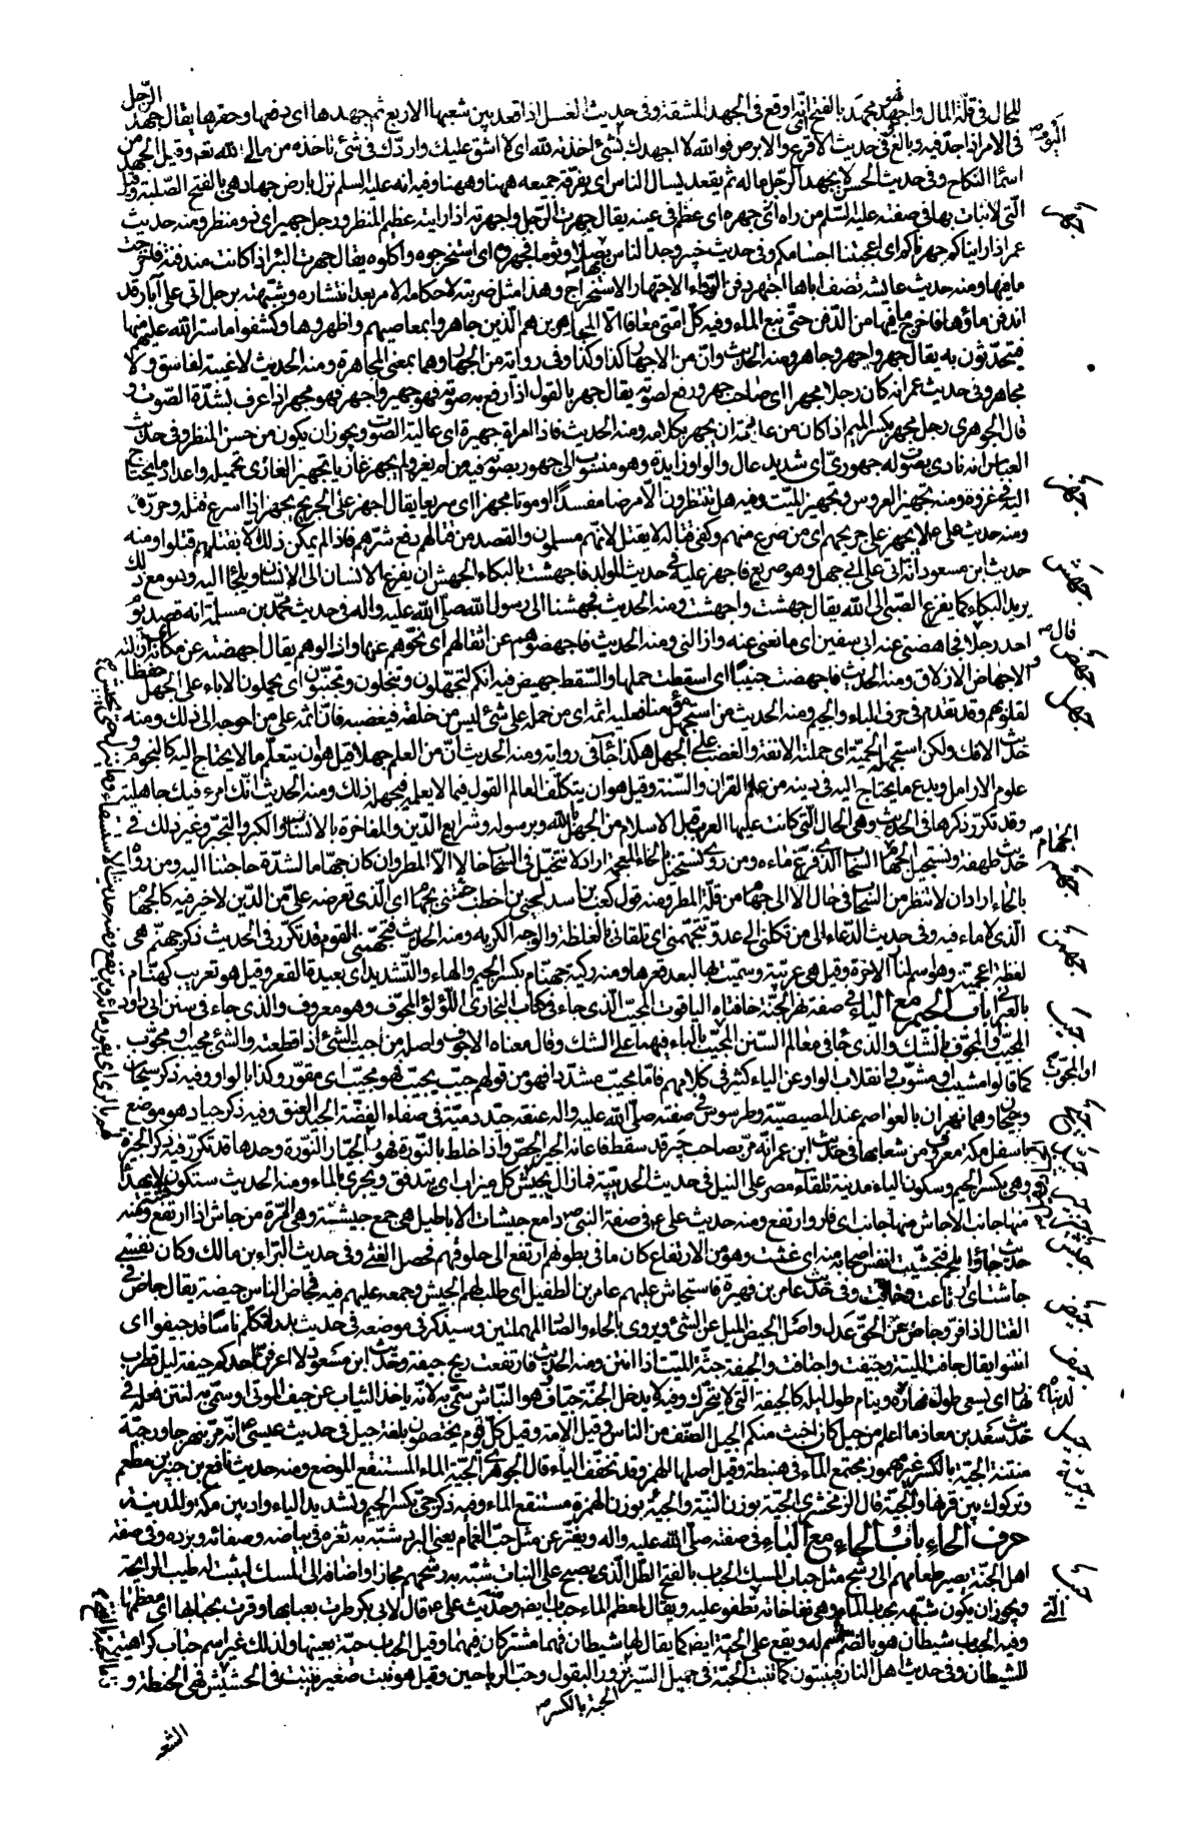 للحال في قلة المال واجهد فهو مجهد بالفتح اي انه اوقع في الجهد المشقة وفي حديث الغسل اذا قعد بين شعبها الاربع ثم جهدها اي دفعها وحفزها يقال جهد الرجل
في الامر اذا جد فيه وبالغ وفي حديث الاقرع والابرص فوالله لا اجهدك بشئ اخذته لله اي لا اشق عليك واردك في شئ تاخذه من مالي لله تعم وقيل الجهد من
اسماء النكاح وفي حديث الحسن لا يجهد الرجل ماله ثم يقعد يسال الناس اي يفرقه جميعه ههنا وههنا وفيه انه عليه السلم نزل بارض جهاد هي بالفتح الصلبة وقيل
جهر
التي لا نبات بها في صفته عليه السلم من راه اي جهره اي عظم في عينه يقال جهرت الرجل واجتهرته اذا رايته عظيم المنظر ورجل جهير اي ذو منظر ومنه حديث
عمر اذا رايناكم جهرناكم اي اعجبتنا اجسامكم وفي حديث خيبر وجد الناس بها بصلا وثوما فجهروه اي استخرجوه واكلوه يقال جهرت البئر اذا كانت مندفنة فاخرجت
ما فيها ومنه حديث عائشة تصف اباها اجتهر دفن الرواء الاجتهار الاستخراج وهذا مثل ضربته لاحكامه الامر بعد انتشاره وشبهته برجل اتى على آبار قد
اندفن ماؤها فاخرج ما فيها من الدفن حتى نبع الماء وفيه كل امتي معافا الا المجاهرين هم الذين جاهروا بمعاصيهم واظهروها وكشفوا ما ستر الله عليهم منها
فيتحدثون به يقال جهر واجهر وجاهر ومنه الحديث وان من الاجهار كذا وكذا وفي رواية من الجهار وهما بمعنى المجاهرة ومنه الحديث لا غيبة لفاسق ولا
مجاهر وفي حديث عمر انه كان رجلا مجهرا اي صاحب جهر ورفع لصوته يقال جهر بالقول اذا رفع به صوته فهو جهير واجهر فهو مجهر اذا عرف بشدة الصوت و
قال الجوهري رجل مجهر بكسر الميم اذا كان من عادته ان يجهر بكلامه ومنه الحديث فاذا امراة جهيرة اي عالية الصوت ويجوز ان يكون من حسن المنظر وفي حديث
العباس انه نادى بصوت له جهوري اي شديد عال والواو زايدة وهو منسوب الى جهور بصوته
جهز
فيه من لم يغز ولم يجهز غازيا تجهيز الغازي تحميله واعداد ما يحتاج
اليه في غزوه ومنه تجهيز العروس وتجهيز الميت وفيه هل تنتظرون الا مرضا مفسدا او موتا مجهزا اي سريعا يقال اجهز على الجريح يجهز اذا اسرع قتله وحرره
ومنه حديث علي علا يجهز على جريحهم اي من صرع منهم وكفي قتاله لا يقتل لانهم مسلمون والقصد من قتالهم دفع شرهم فاذا لم يمكن ذلك الا بقتلهم قتلوا ومنه
جهش
حديث ابن مسعود انه اتى على ابي جهل وهو صريع فاجهز عليه في حديث المولد فاجهشت بالبكاء الجهش ان يفزع الانسان الى الانسان ويلجا اليه وهو مع ذلك
يريد البكاء كما يفزع الصبي الى امه يقال جهشت واجهشت ومنه الحديث فجهشنا الى رسول الله صلى الله عليه واله
جهض
في حديث محمد بن مسلمة انه قصد يوم
احد رجلا قال فجاهضني عنه ابو سفين اي مانعني عنه وازالني ومنه الحديث فاجهضوهم عن اثقالهم اي نحوهم عنها وازالوهم يقال اجهضته عن مكانه ازلته
والاجهاض الازلاق ومنه الحديث فاجهضت جنينا اي اسقطت حملها والسقط جهيض
جهل
فيه انكم لتجهلون وتبخلون وتجبنون اي يحملون الاباء على الجهل حفظا
لقلوبهم وقد تقدم في حرف الباء والجيم ومنه الحديث من استجهل مؤمنا فعليه اثمه اي من حمله على شئ ليس من خلقه فيغضبه فان اثمه على من احوجه الى ذلك ومنه
حديث الافك ولكن استجهلته الحمية اي حملته الانفة والغضب على الجهل هكذا جاء في رواية ومنه الحديث ان من العلم جهلا قيل هو ان يتعلم ما لا يحتاج اليه كالنجوم و
علوم الاوايل ويدع ما يحتاج اليه في دينه من علم القران والسنة وقيل هو ان يتكلف العالم القول فيما لا يعلمه فيجهله ذلك ومنه الحديث انك امرء فيك جاهلية
وقد تكرر ذكرها في الحديث وهي الحال التي كانت عليها العرب قبل الاسلام من الجهل بالله وبرسوله وشرايع الدين والمفاخرة بالانساب والكبر والتجبر وغير ذلك
جهم
في حديث طهفة ونستحيل الجهام الجهام السحاب الذي فرغ ماءه ومن روى نستخيل بالخاء المعجمة اراد لا نتخيل في السحاب خالا الا المطر وان كان جهاما لشدة حاجتنا اليه ومن رواه
بالحاء اراد ان لا ننتظر من السحاب في حال الا الى جهام من قلة المطر ومنه قول كعب بن اسد لحيي بن اخطب جئتني بجهام اي الذي تعرضه علي من الدين لا خير فيه كالجهام
الذي لا ماء فيه وفي حديث الدعاء الى من تكلني الى عدو يتجهمني اي يلقاني بالغلظة والوجه الكريه ومنه الحديث فتجهمني القوم
جهنم
قد تكرر في الحديث ذكر جهنم هي
لفظة اعجمية وهو اسم لنار الاخرة وقيل هي عربية وسميت بها لبعد قعرها ومنه ركية جهنام بكسر الجيم والهاء والتشديد اي بعيدة القعر وقيل هو تعريب كهنام
بالعبراني باب الجيم مع الياء
جيب
في صفة نهر الجنة حافتاه الياقوت المجيب الذي جاء في كتاب البخاري اللؤلؤ المجوف وهو معروف والذي جاء في سنن ابي داود
المجيب او المجوف بالشك والذي جاء في معالم السنن المجيب او المجوب بالباء فيهما على الشك وقال معناه الاجوف واصله من جبت الشئ اذا قطعته والشئ مجيب او مجوب
كما قالوا مشيب او مشوب وانقلاب الواو عن الياء كثير في كلامهم فاما مجيب مشددا فهو من قولهم جيب يجيب فهو مجيب اي مقور وكذا بالواو
جيح
وفيه ذكر سيحان
وجيحان وهما نهران بالعواصم عند المصيصة وطرسوس
جيد
في صفته صلى الله عليه واله عنقه جيد دمية في صفاء الفضة الجيد العنق وفيه ذكر جياد هو موضع
باسفل مكة معروف من شعابها
جير
في حديث ابن عمر انه مر بصاحب جير قد سقط فاعانه الجير الجص واذا خلط بالنورة فهو الجيار وقيل الجيار النورة وحدها
جيز
قد تكرر فيه ذكر الجيزة
وهي بكسر الجيم وسكون الياء مدينة تلقاء مصر على النيل
جيش
في حديث الحديبية فما زال يجيش لهم بالري اي يفور ماؤه ويرتفع
منها جانب الا جاش منها جانب اي فار وارتفع ومنه حديث علي ع في صفة النبي ص دامغ جيشات الاباطيل هي جمع جيشة وهي المرة من جاش اذا ارتفع ومنه
حديث جاؤا بلحم فتجيشت انفس اصحابه منه اي غثت وهو من الارتفاع كان ما في بطونهم ارتفع الى حلوقهم فحصل الغثي وفي حديث البراء بن مالك وكان نفسي
جاشت اي ارتاعت وخافت وفي حديث عامر بن فهيرة فاستجاش عليهم عامر بن الطفيل اي طلب لهم الجيش وجمعه عليهم
جيض
فيه فجاض الناس جيضة يقال جاض في
القتال اذا فر وجاض عن الحق عدل واصل الجيض الميل عن الشئ ويروى بالحاء والصاد المهملتين وسيذكر في موضعه
جيف
في حديث بدر اتكلم ناسا قد جيفوا اي
انتنوا يقال جافت الميتة وجيفت واجتافت والجيفة جثة الميت اذا انتن ومنه الحديث فارتفعت ريح جيفة وحديث ابن مسعود لا اعرفن احدكم جيفة ليل قطرب
نهار اي يسعى طول نهاره لدنياه وينام طول ليله كالجيفة التي لا يتحرك وفيه لا يدخل الجنة جياف هو النباش سمي به لانه ياخذ الثياب عن جيف الموتى او سمي به لنتن فعله
جيل
في حديث سعد بن معاذ ما اعلم من جيل كان اخبث منكم الجيل الصنف من الناس وقيل الامة وقيل كل قوم يختصون بلغة جيل
جية
في حديث عيسى ع انه مر بنهر جاور جية
منتنة الجية بالكسر غير مهموز مجتمع الماء في هبطة وقيل اصلها الهمز وقد تخفف الياء قال الجوهري الجية الماء المستنقع في الموضع ومنه حديث نافع بن جبير بن مطعم
وتركوك بين قرنها والجية قال الزمخشري الجية بوزن النية والجية بوزن المرة مستنقع الماء وفيه ذكر جي بكسر الجيم وتشديد الياء واد بين مكة والمدينة
حرف الحاء باب الحاء مع الباء
حبب
في صفته صلى الله عليه واله ويفتر عن مثل حب الغمام يعني البرد شبه به ثغره في بياضه وصفائه وبرده وفي صفة
اهل الجنة يصير طعامهم الى رشح مثل حباب المسك الحباب بالفتح الطل الذي يصبح على النبات شبه به رشحهم مجازا واضافه الى المسك ليثبت له طيب الرايحة
ويجوز ان يكون شبهه بحباب الماء وهي نفاخاته التي تطفو عليه ويقال لمعظم الماء حباب ايضا ومنه حديث علي ع قال لابي بكر طرت بعبابها وفزت بحبابها اي معظمها
وفيه الحباب شيطان هو بالضم اسم له ويقع على الحية ايضا كما يقال لها شيطان فهما مشتركان فيهما وقيل الحباب حية بعينها ولذلك غير اسم حباب كراهية
للشيطان وفي حديث اهل النار فينبتون كما تنبت الحبة في حميل السيل الحبة بالكسر بزور البقول وحب الرياحين وقيل هو نبت صغير ينبت في الحشيش فهي الحنطة و
الشعير